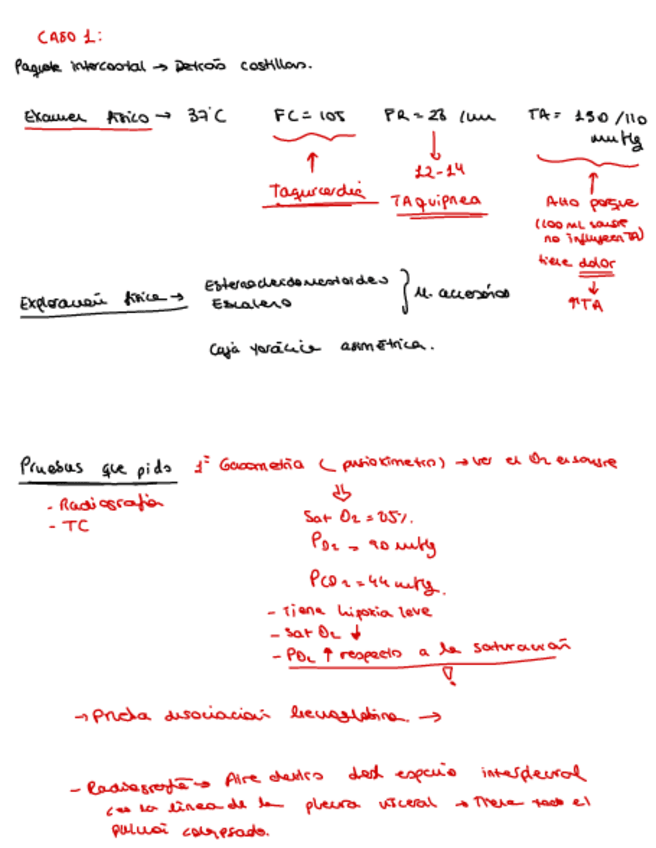 CASO 1:
Paquete intercostal → Detrás costillas.
Examen físico → 37°C FC = 105 FR = 28 /min TA = 190 /110 mmHg
Taquicardia
12-14
TAquipnea
Alto porque
(100 mL sangre
no influyen TA)
tiene dolor
↑TA
Exploración física → Esternocleidomastoideo
Escaleno
} M. accesorios
Caja torácica asimétrica.
Pruebas que pido 1º Gasometría ( pulsioxímetro) → ver el O2 en sangre
- Radiografía
- TC
Sat O2 = 85%.
PO2 = 90 mmHg
PCO2 = 44 mmHg.
- Tiene hipoxia leve
- Sat O2 ↓
- PO2 ↑ respecto a la saturación
→ Prueba disociación hemoglobina →
- Radiografía → Aire dentro del espacio interpleural
con la línea de la pleura visceral → Tiene todo el
pulmón colapsado.